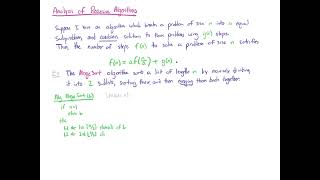 Analysis of Recursive Algorithms
Suppose I have an algorithm which breaks a problem of size n into a equal
Subproblems, and combines solution to them problem using g(n) steps.
Then the number of steps f(n) to solve a problem of size n satisfies
f(n) = a f(n/b) + g(n).
Ex The MergeSort algorithm sorts a list of length n by recursively dividing
it into 2 sublists, sorting these and then merging them back together.
Alg MergeSort(L)
if n=1
return L
else
L1 ← 1st elements of L
L2 ← 2nd